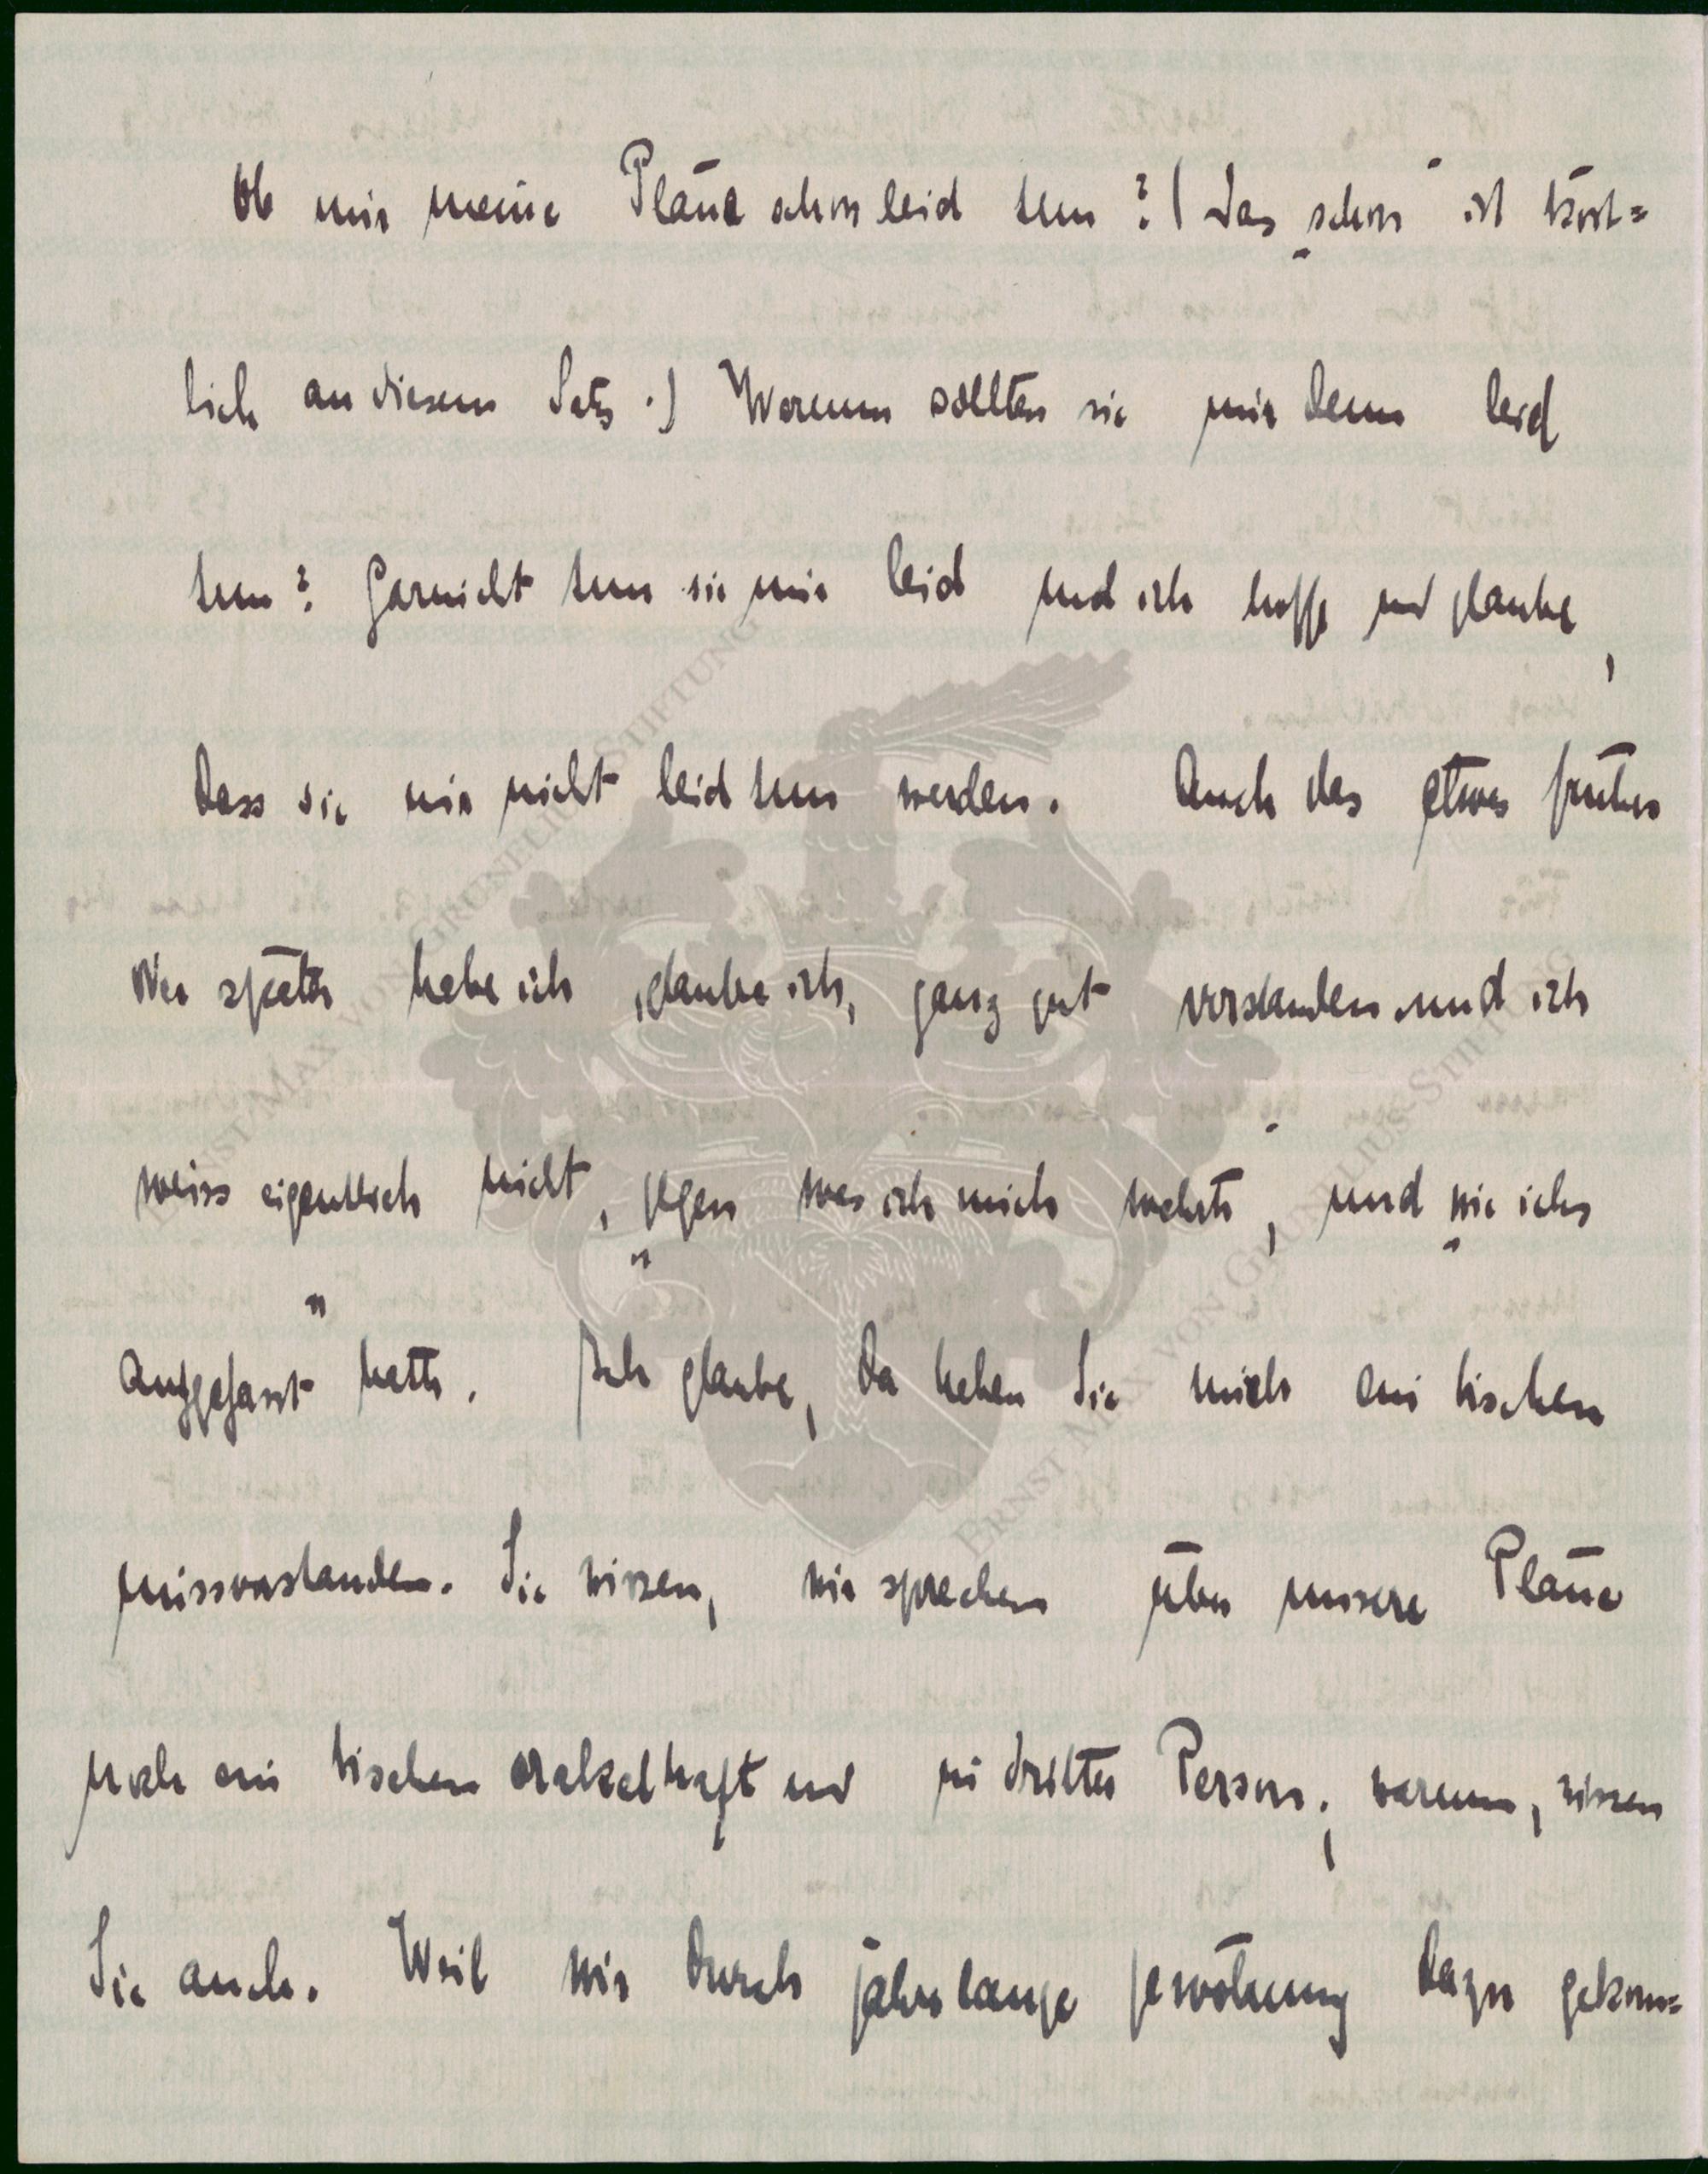 Ob mir meine Pläne schon leid tun? (Das „schon“ ist köst=
lich an diesem Satz.) Warum sollten sie mir denn leid
tun? Garnicht tun sie mir leid und ich hoffe und glaube,
dass sie mir nicht leid tun werden. Auch das etwas früher
oder später habe ich, glaube ich, ganz gut verstanden und ich
weiss eigentlich nicht, „gegen was ich mich wehrte“, und „wie ichs
aufgefasst“ hatte. Ich glaube, da haben Sie mich ein bischen
missverstanden. Sie wissen, wir sprechen über unsere Pläne
noch ein bischen orakelhaft und in dritter Person; warum, wissen
Sie auch. Weil wir durch jahrelange Gewöhnung dazu gekom=
ERNST MAX VON GRUNELIUS-STIFTUNG
ERNST MAX VON GRUNELIUS-STIFTUNG